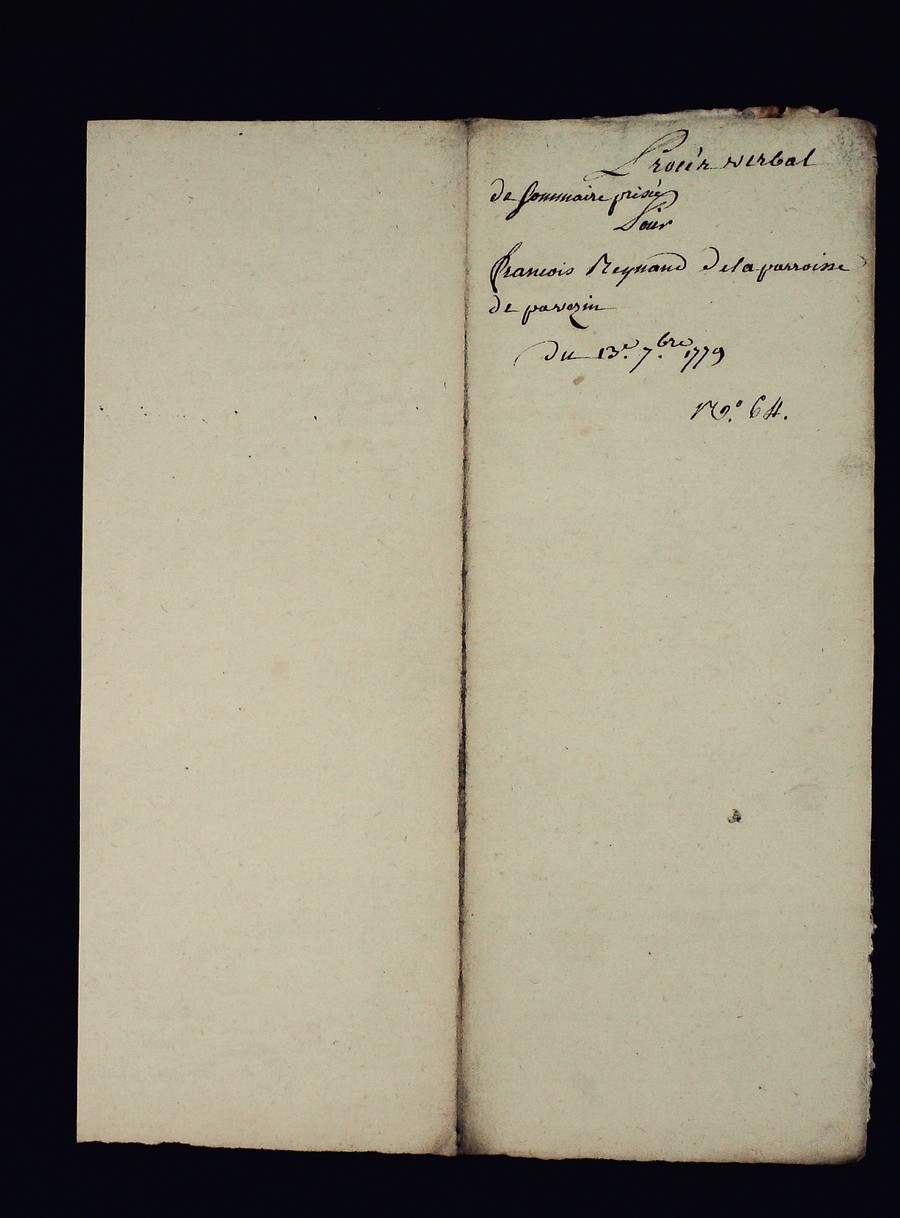 Procès verbal
de sommaire prisée
Pour
francois Reynaud de la parroisse
de pavezin
du 13.e 7.bre 1779
No. 64.